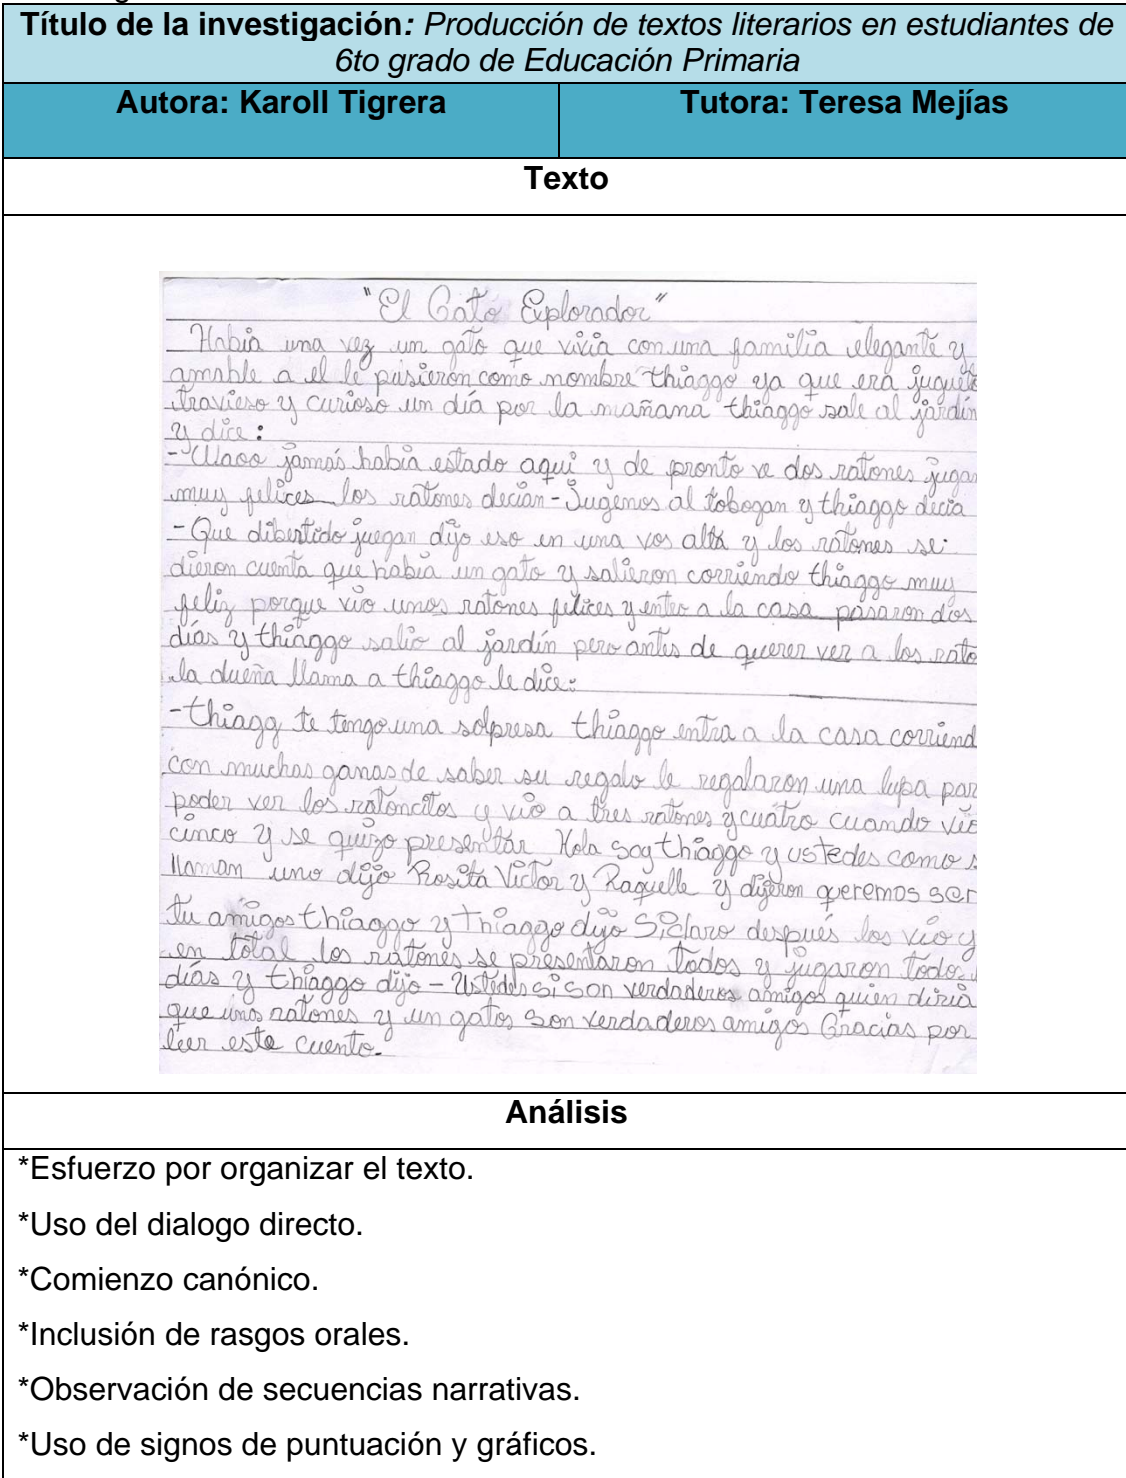 Título de la investigación: Producción de textos literarios en estudiantes de
6to grado de Educación Primaria
Autora: Karoll Tigrera
Tutora: Teresa Mejías
Texto
"El Gato Explorador"
Había una vez un gato que vivia con una familia elegante y
amable a el le pusieron como nombre thiaggo ya que era juguetó
travieso y curioso un día por la mañana thiaggo sale al jardín
y dice:
-Waoo jamás había estado aquí y de pronto ve dos ratones jugan
muy felices los ratones decían-Jugenos al tobogan y thiaggo decia
-Que dibertido juegan dijo eso en una vos alta y los ratones se
dieron cuenta que habia un gato y salieron corriendo thiaggo muy
feliz porque vio unos ratones felices y entro a la casa pasaron dos
días y thiaggo salio al jardín pero antes de querer ver a los rato
la dueña llama a thiaggo le dice:
-thiagg te tengo una solpresa thiaggo entra a la casa corriend
con muchas ganas de saber su regalo le regalaron una lupa par
poder ver los ratoncitos y vio a tres ratones y cuatro cuando vio
cinco y se quizo presentar Hola soy thiaggo y ustedes como s
llaman uno dijo Rosita Victor y Raquelle y dijeron queremos ser
tu amigos thiaggo y thiaggo dijo Si claro después los vio y
en total los ratones se presentaron todos y jugaron todos
días y thiaggo dijo - Ustedes si son verdaderos amigos quien diria
que unos ratones y un gatos son verdaderos amigos Gracias por
leer este cuento.
Análisis
*Esfuerzo por organizar el texto.
*Uso del dialogo directo.
*Comienzo canónico.
*Inclusión de rasgos orales.
*Observación de secuencias narrativas.
*Uso de signos de puntuación y gráficos.